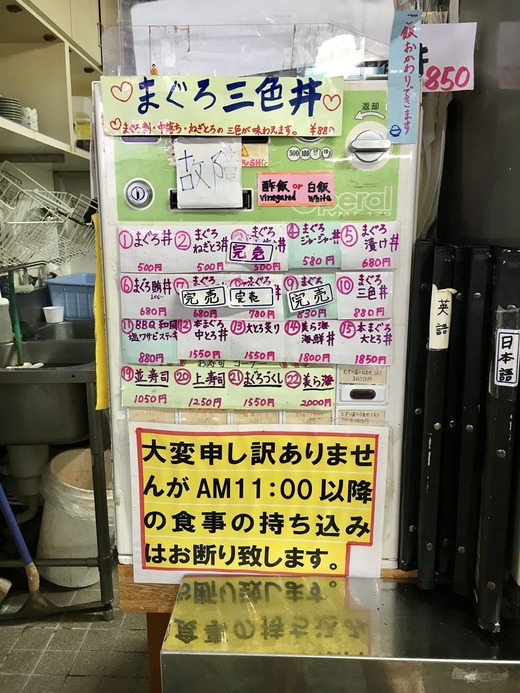 ご飯おかわりできます
丼
850
まぐろ三色丼
まぐろ刺・中落ち・ねぎとろの三色が味わえます。 ¥880
返却
故障
500 100 50 10
酢飯 or 白飯
vinegared white
① まぐろ丼 500円
② まぐろねぎとろ丼 500円
完売 500円
④ まぐろジャージャー丼 580円
⑤ まぐろ漬け丼 680円
⑥ まぐろ 680円
完売 680円
完売 780円
⑨ 完売 830円
⑩ まぐろ三色丼 880円
⑪ BBQ 和風塩ワサビステーキ 880円
⑫ 本まぐろ中とろ丼 1550円
⑬ 大とろ炙り 1550円
⑭ 美ら海海鮮丼 1800円
⑮ 本まぐろ大とろ丼 1850円
お寿司コーナー
⑲ 並寿司 1050円
⑳ 上寿司 1250円
㉑ まぐろづくし 1550円
㉒ 美ら海 2000円
英語
日本語
大変申し訳ありませ
んがAM11:00以降
の食事の持ち込み
はお断り致します。